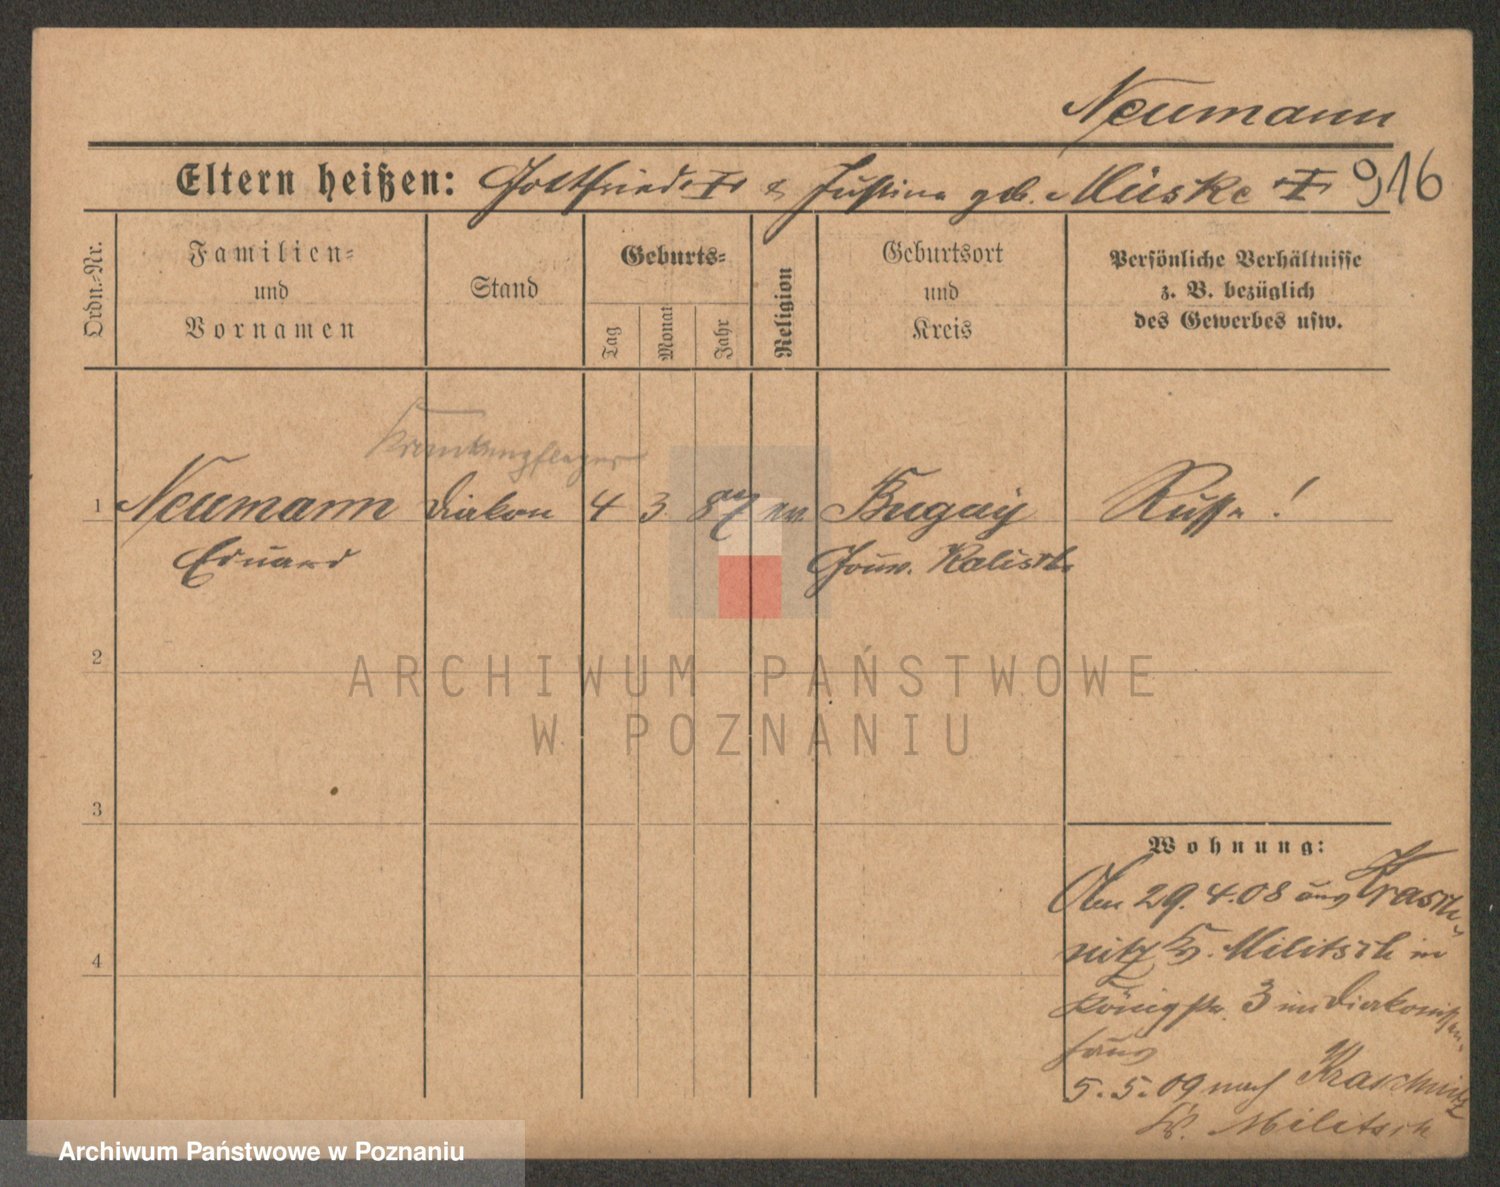 Neumann
Eltern heißen: Gottfried & Justina geb. Müske 916
Ordn.-Nr.
Familien-
und
Vornamen
Stand
Geburts-
Tag
Monat
Jahr
Religion
Geburtsort
und
Kreis
Persönliche Verhältnisse
z. B. bezüglich
des Gewerbes usw.
Krankenpfleger
1 Neumann Diakon 4 3 87 ev. Bugaij Russe !
Eduard Gouv. Kalisch
2
ARCHIWUM PAŃSTWOWE
W POZNANIU
3
Wohnung:
29.4.08 aus Krasch-
nitz Kr. Militsch in
Königstr. 3 im Diakonissen-
haus
4
5.5.09 nach Kraschnitz
Kr. Militsch
Archiwum Państwowe w Poznaniu